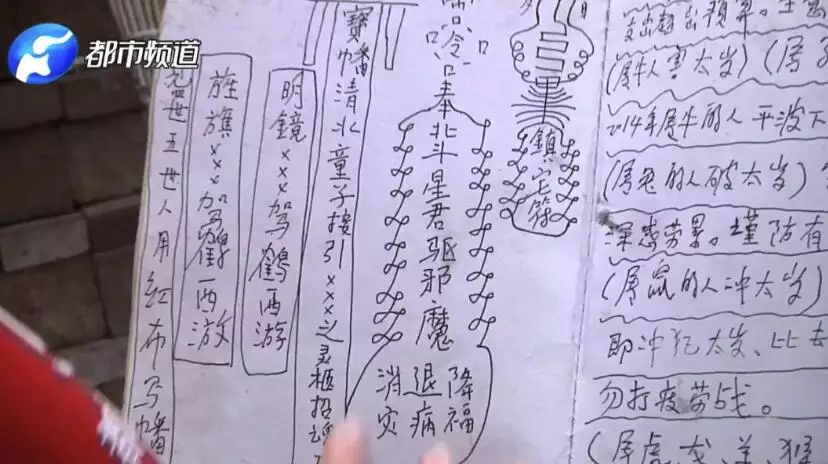 都市频道
五世人用红布马幡
旌旗×××驾鹤西游
明鏡×××驾鹤西游
寶幡清北童子接引×××之灵柩招魂
奉北斗星君驱邪魔
消灾
退病
降福
鎮宅符
(属牛人害太岁)(属
2014年属牛的人平波下
(属兔的人破太岁)
深感劳累。谨防有
(属鼠的人冲太岁)
即冲犯太岁、比去
勿打疲劳战。
(属虎、龙、羊、猴